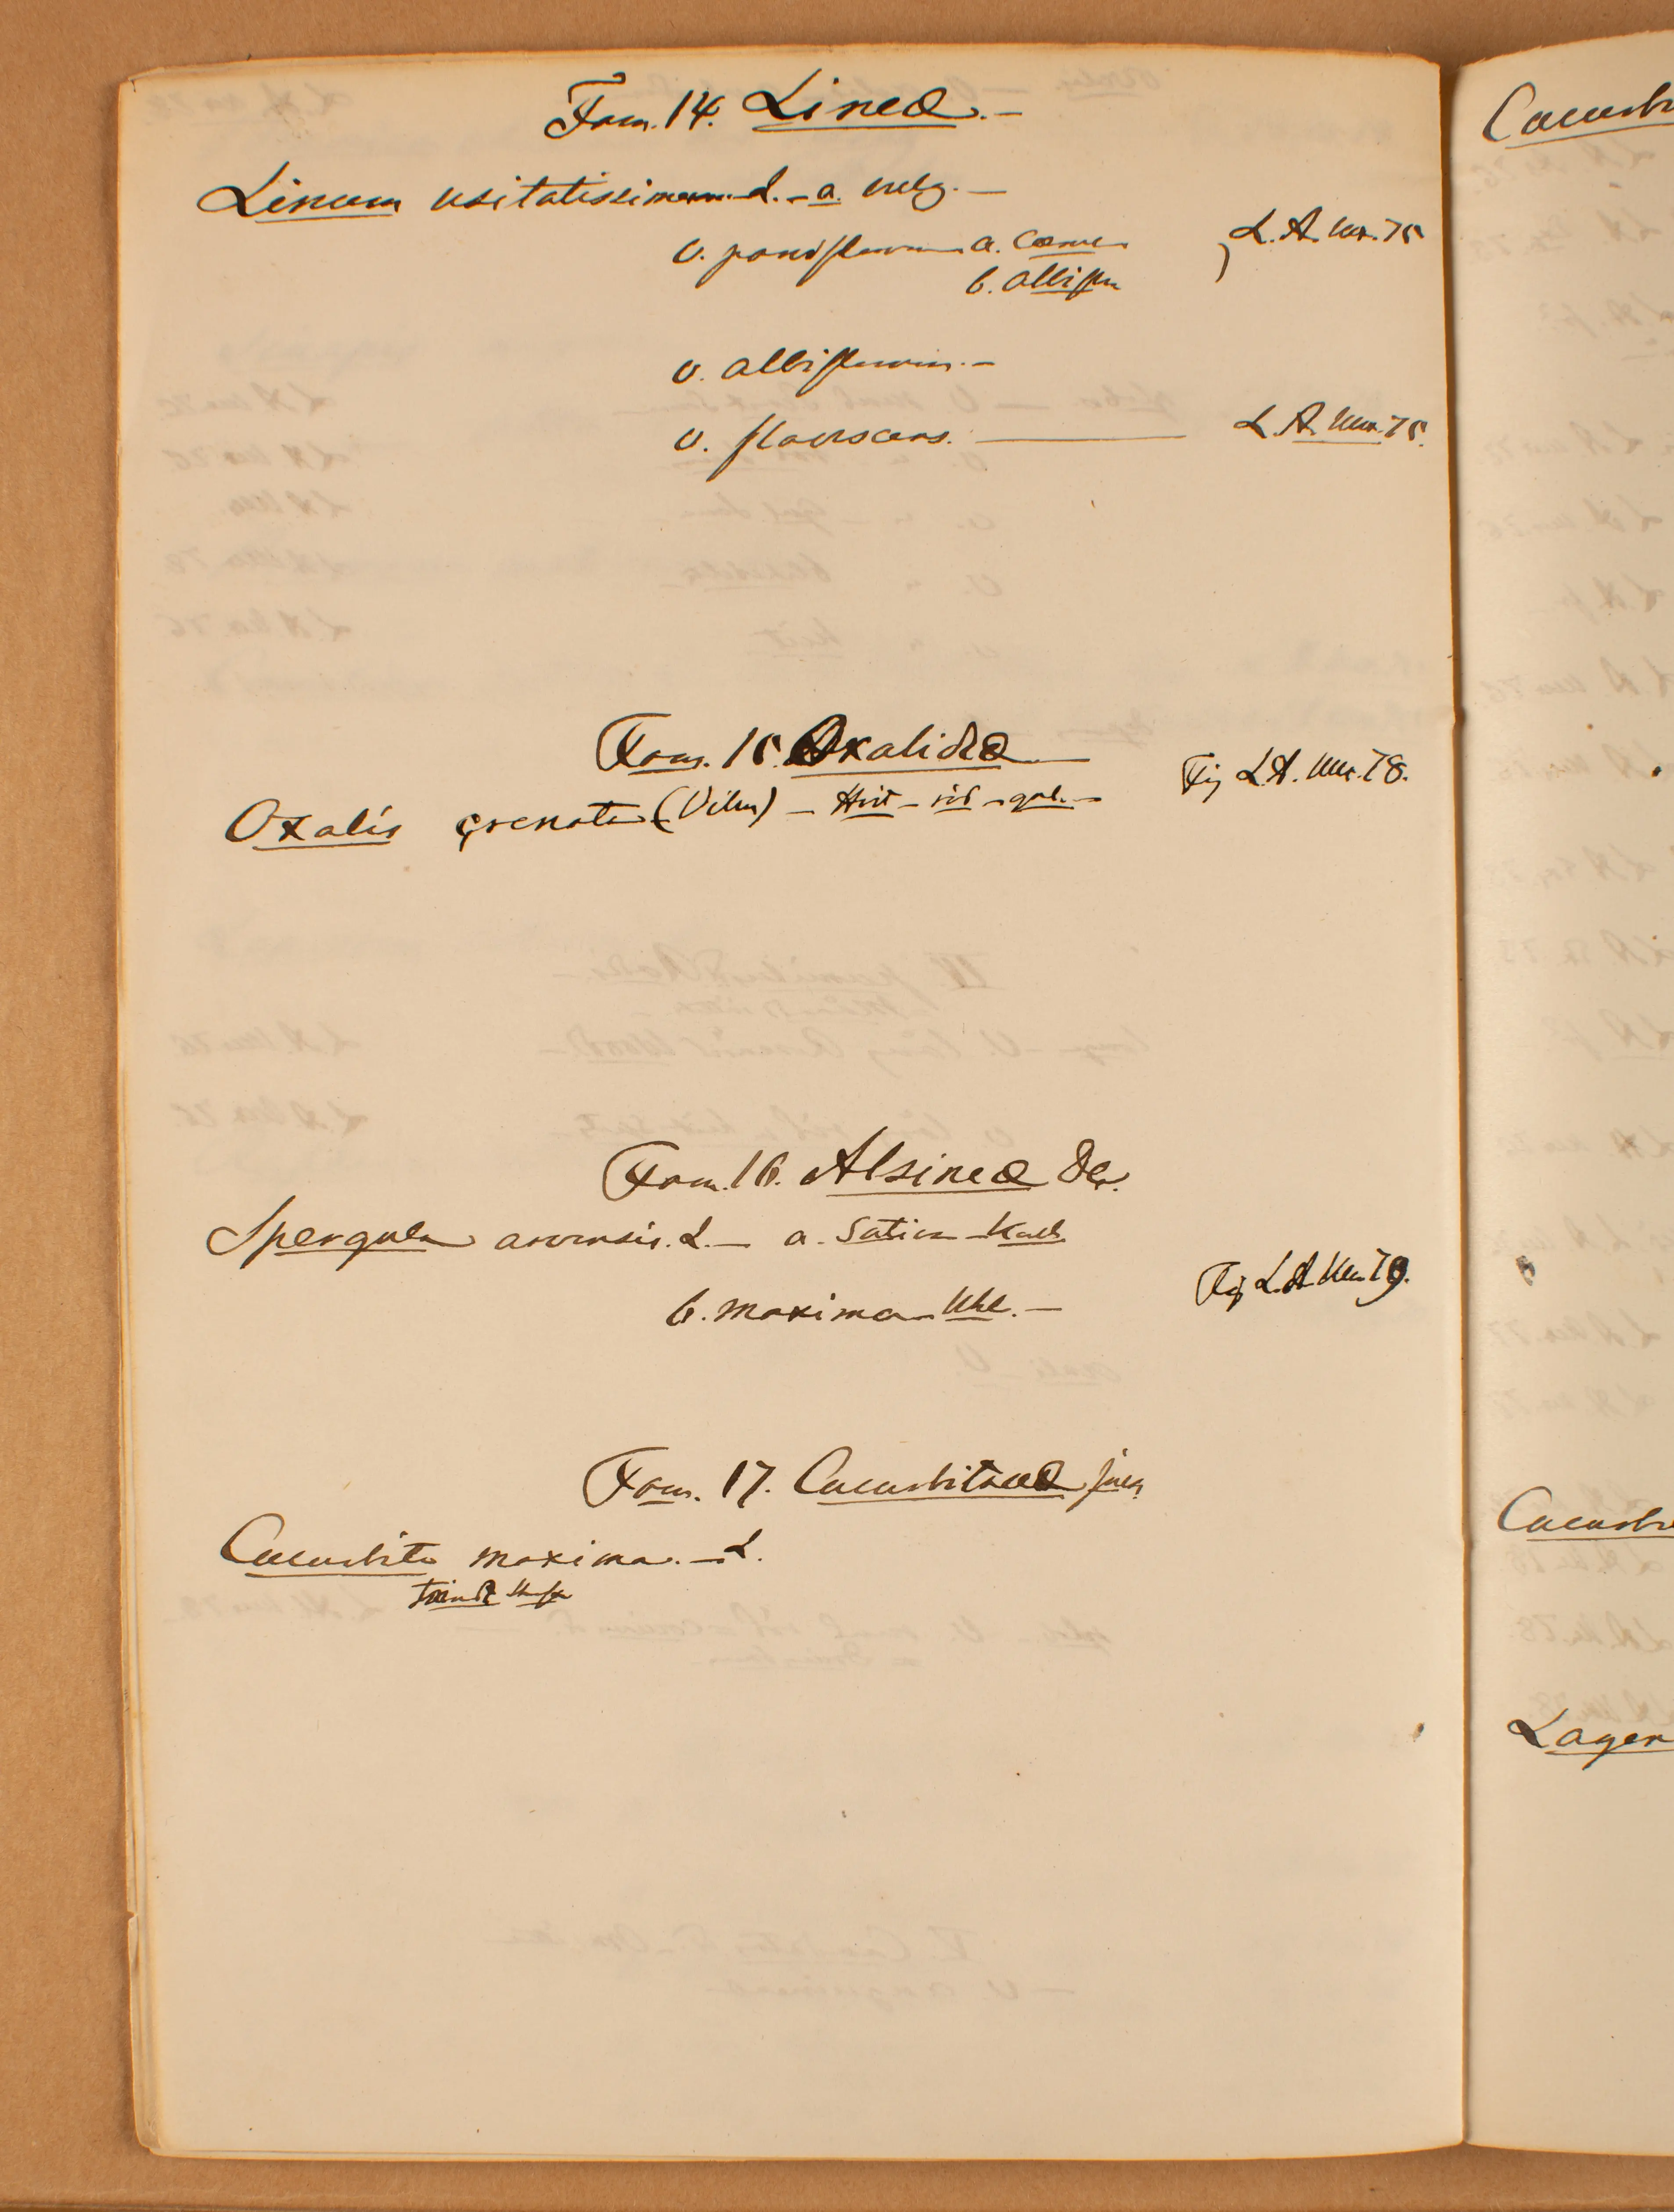 Fam. 14. Lineæ. —
Linum usitatissimum. L. – a. vulg. —
v. parviflorum a. Coerul
b. albifl
L.A. Un. 75
v. albiflorum. –
v. flavescens. — L.A. Un. 75.
Fam. 15. Oxalideæ —
Fig L.A. Un. 78.
Oxalis crenata (Vilm) – Hvit – röd – gul. –
Fam. 16. Alsineæ Dec.
Spergula arvensis. L. — a. Sativa – Koch
b. maxima –
Fig L.A. Un. 79.
Fam. 17. Cucurbitaceæ Juss.
Cucurbita maxima. – L.
Cucurb
Cucurb
Lagen